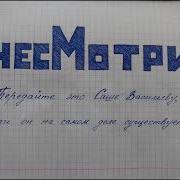 несМотри
Передайте это Саше Василеву,
ли он на самом деле существуе